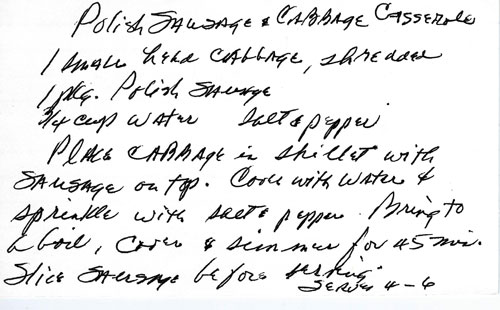 Polish Sausage & Cabbage Casserole
1 small head cabbage, shredded
1 pkg. Polish Sausage
3/4 cup water salt & pepper
Place cabbage in skillet with
sausage on top. Cover with water &
sprinkle with salt & pepper. Bring to
a boil, cover & simmer for 45 min.
Slice sausage before serving.
Serves 4-6